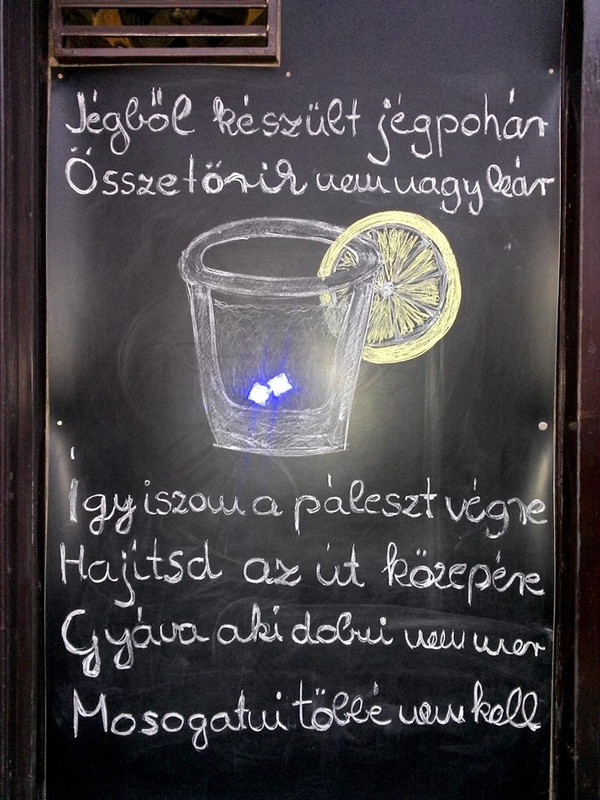 Jégből készült jégpohár
Összetörik nem nagy kár
Így iszom a páleszt végre
Hajítsd az út közepére
Gyáva aki dobni nem mer
Mosogatni többé nem kell